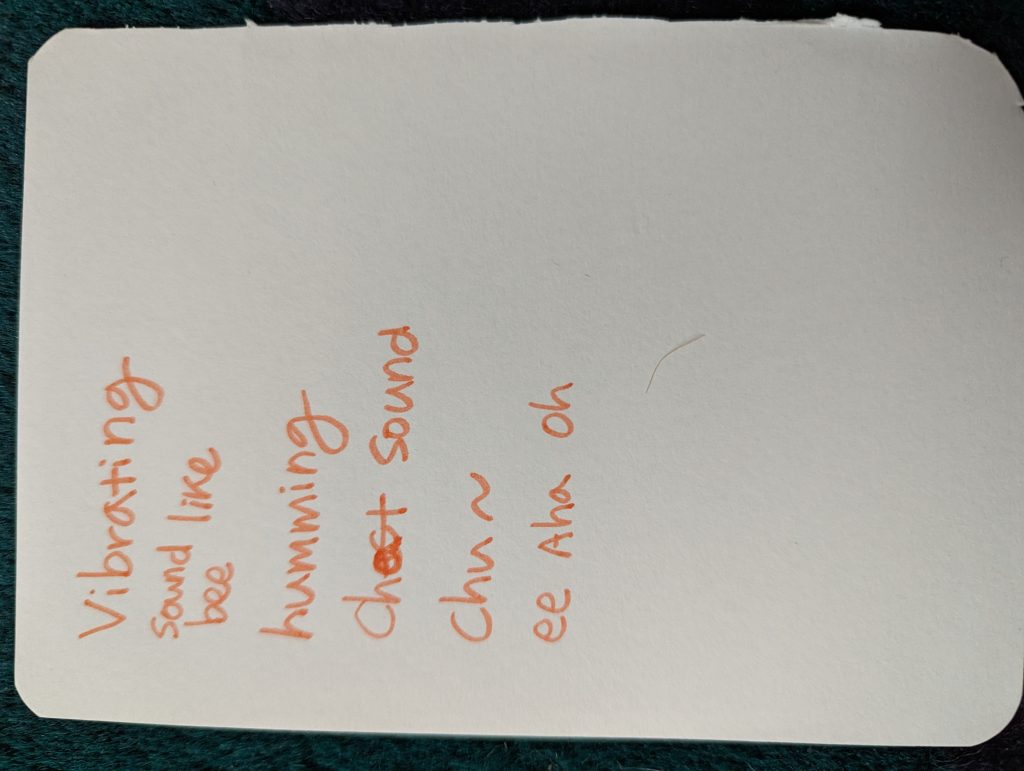 Vibrating
sound like
bee
humming
Chest Sound
Chu ~
ee Aha oh